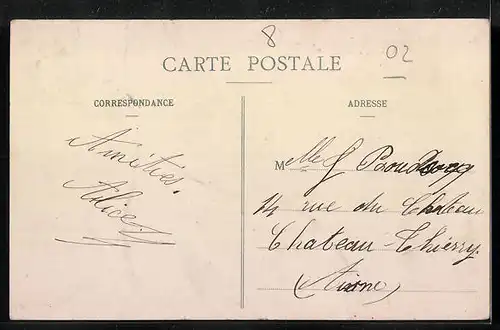 8
02
CARTE POSTALE
CORRESPONDANCE
ADRESSE
Amitiés.
Alice
Melle J
14 rue du Château
Chateau-Thierry
(Aisne)